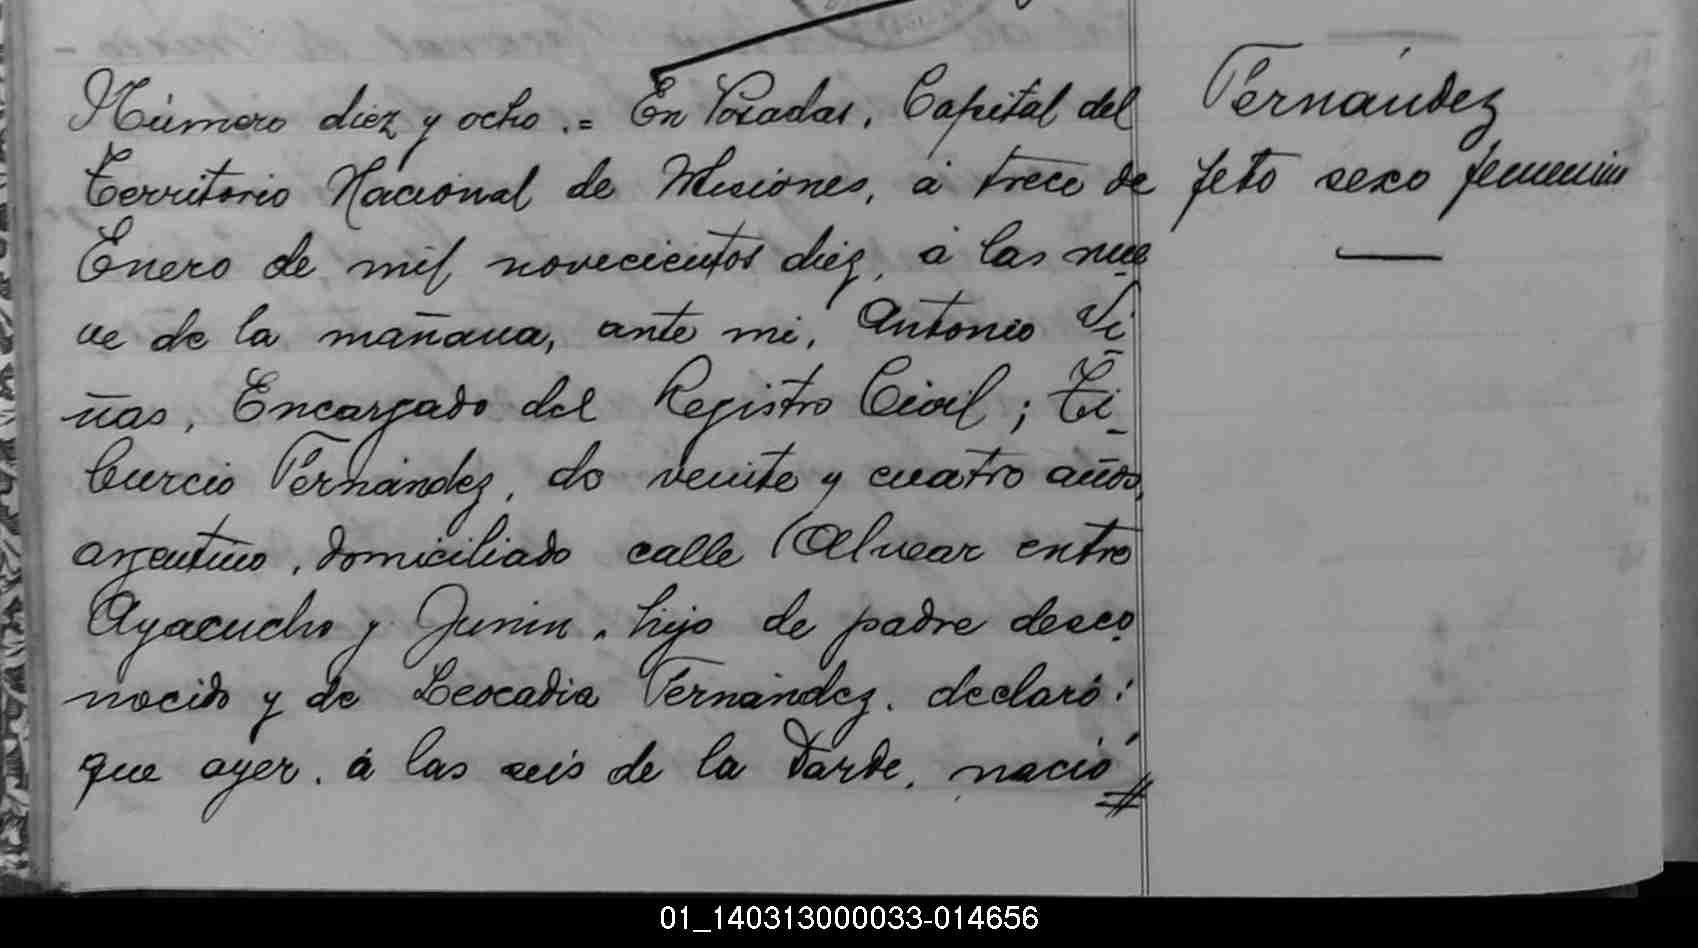 Número diez y ocho.= En Posadas, Capital del
Territorio Nacional de Misiones, á trece de
Enero de mil novecientos diez, á las nue
ve de la mañana, ante mi, Antonio Vi
ñas, Encargado del Registro Civil; Ti-
burcio Fernández, de veinte y cuatro años,
argentino, domiciliado calle Alvear entre
Ayacucho y Junin, hijo de padre desco
nocido y de Leocadia Fernández, declaró:
que ayer, á las seis de la tarde, nació
Fernández
feto sexo femenino
01_140313000033-014656